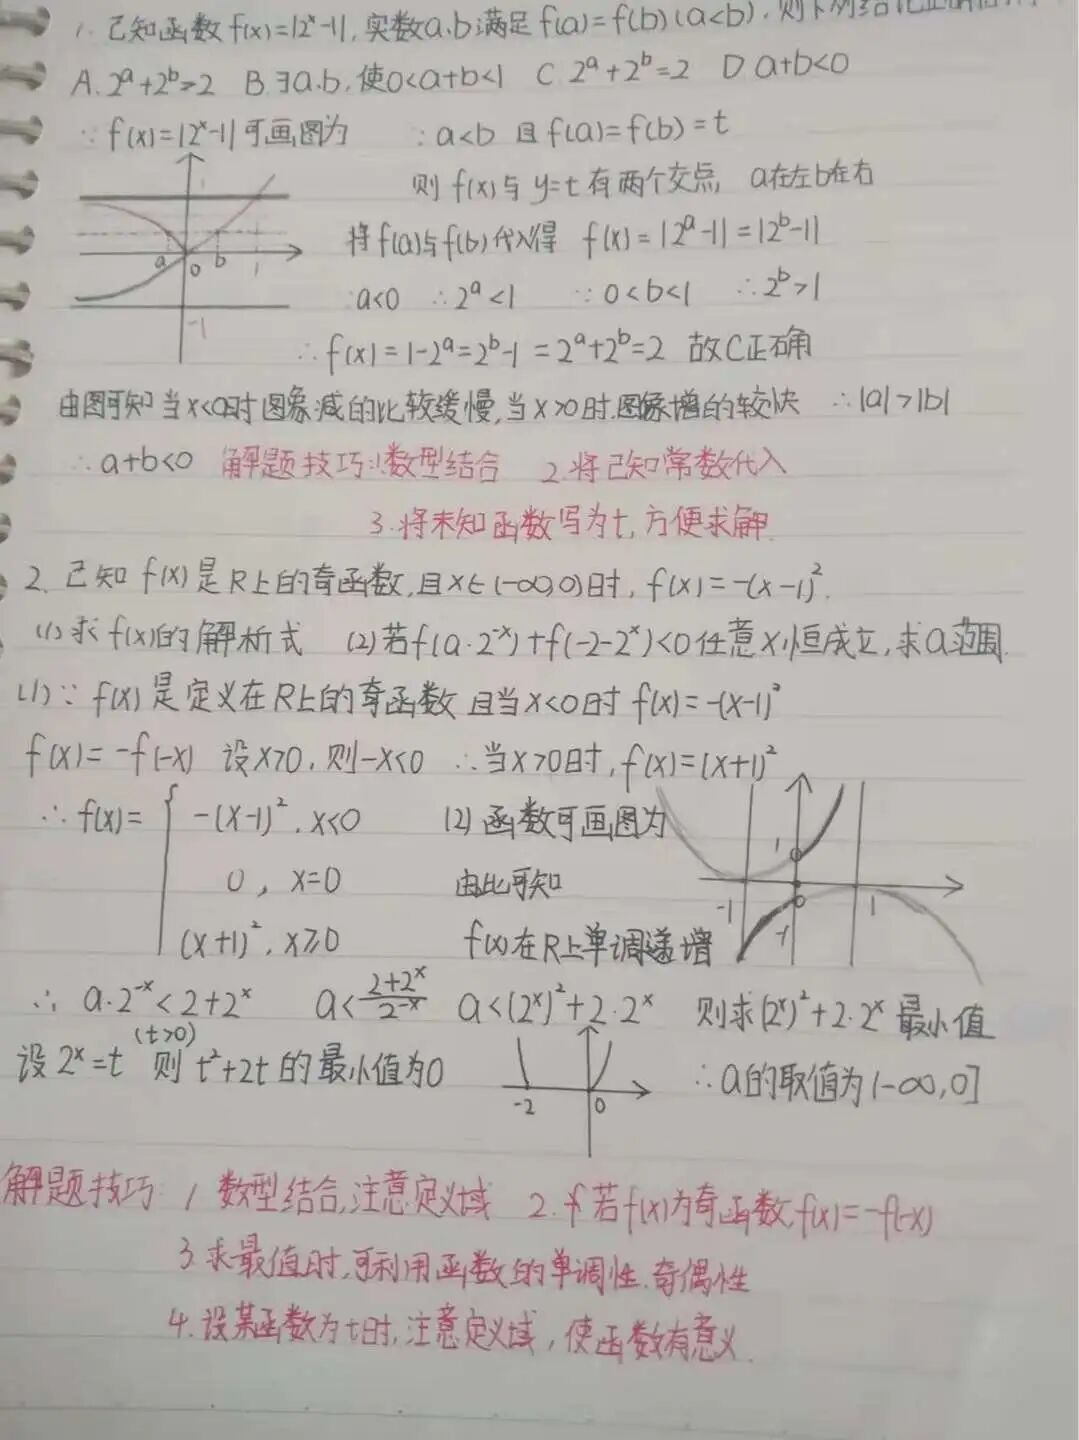 1. 已知函数 f(x)=|2ˣ-1|, 实数a.b满足f(a)=f(b)(a<b), 则下列结论正确
A. 2ᵃ+2ᵇ>2 B.∃a.b,使0<a+b<1 C. 2ᵃ+2ᵇ=2 D. a+b<0
∵ f(x)=|2ˣ-1|可画图为 ∵ a<b 且 f(a)=f(b)=t
则 f(x)与 y=t 有两个交点, a在左b在右
将f(a)与f(b)代入得 f(x)=|2ᵃ-1|=|2ᵇ-1|
1
a 0 b 1
-1
∵a<0 ∴2ᵃ<1 ∵0<b<1 ∴2ᵇ>1
∴f(x)=1-2ᵃ=2ᵇ-1=2ᵃ+2ᵇ=2 故C正确
由图可知当x<0时图象减的比较缓慢,当x>0时.图象增的较快 ∴|a|>|b|
∴a+b<0 解题技巧:1.数型结合 2.将已知常数代入
3.将未知函数写为t,方便求解.
2. 已知 f(x)是R上的奇函数,且x∈(-∞,0)时, f(x)=-(x-1)².
(1)求f(x)的解析式 (2)若f(a·2⁻ˣ)+f(-2-2ˣ)<0任意x恒成立,求a范围.
(1)∵ f(x)是定义在R上的奇函数 且当x<0时 f(x)=-(x-1)²
f(x)=-f(-x) 设x>0,则-x<0 ∴当x>0时,f(x)=(x+1)²
∴f(x)= { -(x-1)², x<0 (2)函数可画图为
0, x=0 由此可知
(x+1)², x≥0 f(x)在R上单调递增
1
-1 1
-1
∴ a·2⁻ˣ<2+2ˣ a<(2+2ˣ)/2⁻ˣ a<(2ˣ)²+2·2ˣ 则求(2ˣ)²+2·2ˣ最小值
(t>0)
设2ˣ=t 则 t²+2t的最小值为0 ∴a的取值为(-∞,0]
-2 0
解题技巧 1 数型结合,注意定义域 2. 若f(x)为奇函数,f(x)=-f(-x)
3.求最值时,可利用函数的单调性.奇偶性
4.设某函数为t时,注意定义域,使函数有意义.